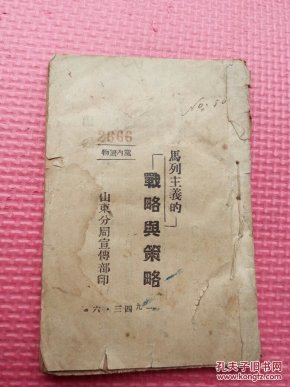 No. 50
2666
物選內黨
馬列主義的
戰略與策略
山東分局宣傳部印
一九四三·六·
孔夫子旧书网